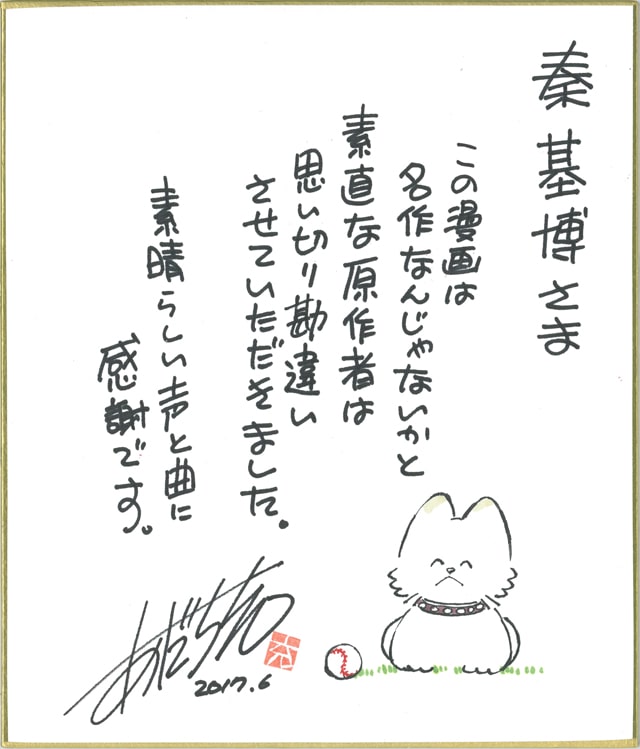 秦 基博さま
この漫画は
名作なんじゃないかと
素直な原作者は
思い切り勘違い
させていただきました。
素晴らしい声と曲に
感謝です。
あだち充
2017.6